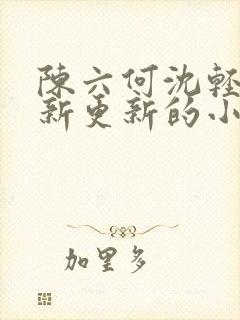 陳六何沈輕
新更新的小
加里多